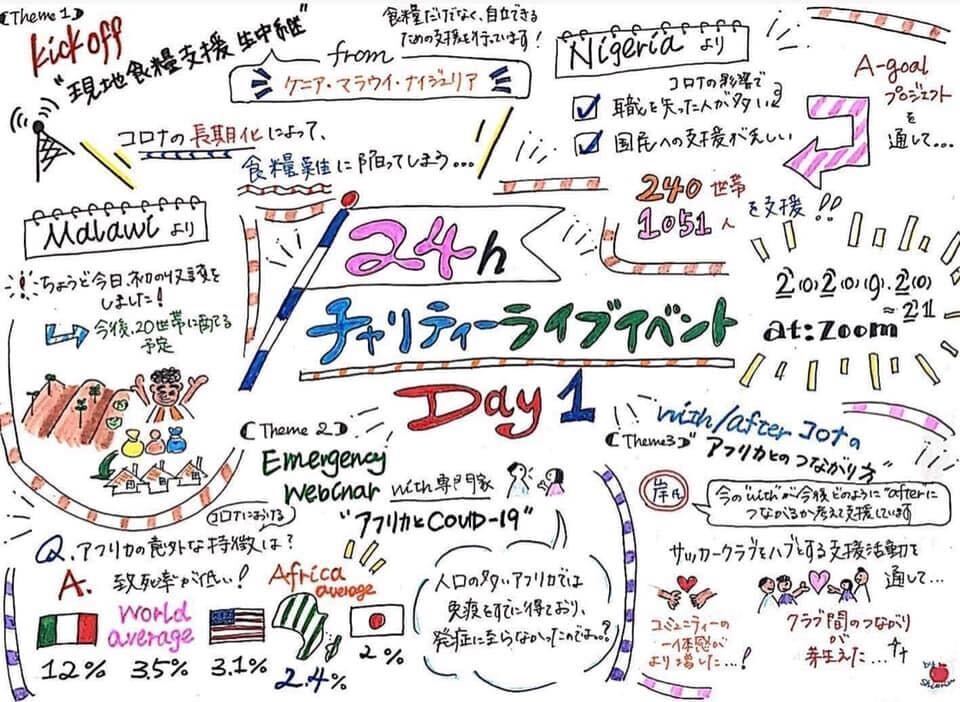 (Theme 1)
kick off
"現地食糧支援生中継"
from
ケニア・マラウイ・ナイジェリア
食糧だけでなく、自立できる
ための支援を行っています!
コロナの長期化によって、
食糧難に陥ってしまう...
Nigeria より
コロナの影響で
職を失った人が多い
国民への支援が乏しい
A-goal
プロジェクト
を
通して...
240世帯
1051人
を支援!!
Malawi より
ちょうど今日、初の収穫を
しました!
今後、20世帯に配てる
予定
24h
チャリティーライブイベント
Day 1
2(0)2(0).(9).2(0)
~21
at:Zoom
(Theme 2)
Emergency
Webinar with 専門家
"アフリカとCOVID-19"
コロナにおける
Q.アフリカの意外な特徴は?
A.致死率が低い!
12%
World
average
3.5%
3.1%
Africa
average
2.4%
2%
人口の多いアフリカでは
免疫をすでに得ており、
発症に至らなかったのでは..?
(Theme3)
with/after コロナの
アフリカとのつながり方
岸氏
今の"with"が今後どのように"after"に
つながるか考えて支援しています
サッカークラブをハブとする支援活動を
通して...
コミュニティーの
一体感が
より増した...!
クラブ間のつながり
が
芽生えた...
by